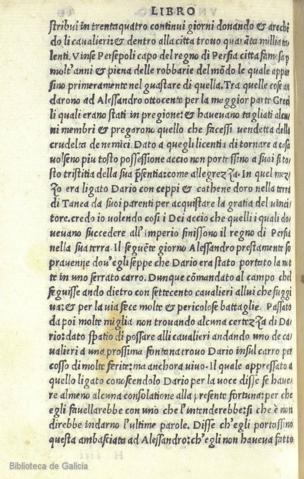 LIBRO
stribuì in trentaquatro continui giorni donando & arechì
do li caualieri: & dentro alla citta trouo quarāta millia ta
lenti. Vinse Persepoli capo del regno di Persia citta famosa p
molt'anni & piena delle robbarie del mōdo le quale appar
sino primeramente nel guastare di quella. Tra quelle cose an
darono ad Alessandro ottocento per la maggior parte Greci
li quali erano stati in pregione: & haueuano tagliati alcu
ni membri & pregorono quello che facessi uendetta della
crudelta de nemici. Dato a quegli licentia di tornare a casa
uolseno piu tosto possessione accio non portassino a suoi si to
sto tristitia della sua psentia: come allegrezza. In quel mezi
zo era ligato Dario con ceppi & cathene doro nella terra
di Tanea da suoi parenti per acquistare la gratia del uinci
tore. credo io uolendo cosi i Dei accio che quelli i quali do
ueuano succedere all'imperio finissono il regno di Persia
nella sua terra. Il seguēte giorno Alessandro prestamente so
prauenne dou'egli seppe che Dario era stato portato la not
te in uno serrato carro. Dunque cōmandato al campo che'l
seguisse ando dietro con settecento cauallieri allui che fuggi
ua: & per la uia fece molte & pericolose battaglie. Passato
da poi molte miglia non trouando alcuna certezza di Da
rio: dato spatio di possare alli cauallieri andando uno de ca
uallieri a una prossima fontana trouo Dario insul carro per
cosso di molte ferite: ma anchora uiuo. Il quale appressato a
quello ligato conoscendolo Dario per la uoce disse si haue
re almeno alcuna consolatione alla presente fortuna: per che
egli fauellarebbe con uno che l'intenderebbe: si che è non
direbbe indarno l'ultime parole. Disse ch'egli portassino
questa ambasciata ad Alessandro: ch'egli non haueua fatto
Biblioteca de Galicia